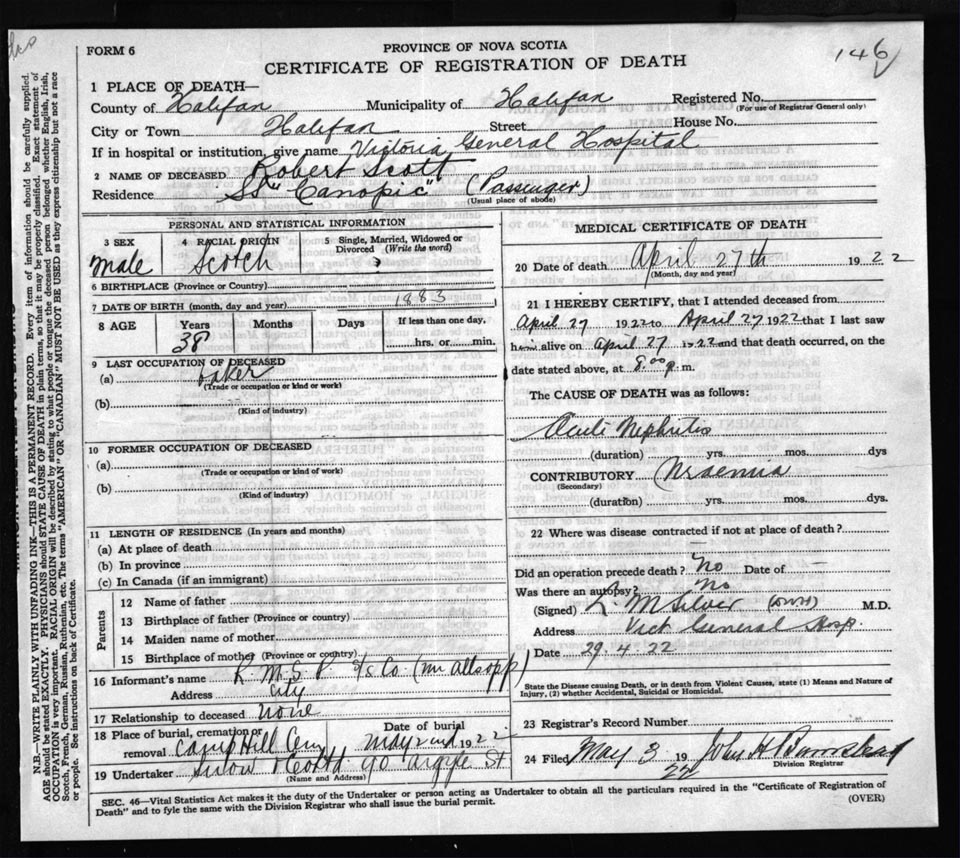 FORM 6
PROVINCE OF NOVA SCOTIA
CERTIFICATE OF REGISTRATION OF DEATH
146
1 PLACE OF DEATH—
County of Halifax Municipality of Halifax Registered No.
(For use of Registrar General only)
City or Town Halifax Street House No.
If in hospital or institution, give name Victoria General Hospital
2 NAME OF DECEASED Robert Scott
Residence SS "Canopic" (Passenger)
(Usual place of abode)
PERSONAL AND STATISTICAL INFORMATION
3 SEX 4 RACIAL ORIGIN 5 Single, Married, Widowed or
Divorced (Write the word)
Male Scotch ?
6 BIRTHPLACE (Province or Country)
7 DATE OF BIRTH (month, day and year) 1883
8 AGE Years Months Days If less than one day,
38 hrs. or min.
9 LAST OCCUPATION OF DECEASED
(a) baker
(Trade or occupation or kind or work)
(b)
(Kind of industry)
10 FORMER OCCUPATION OF DECEASED
(a)
(Trade or occupation or kind of work)
(b)
(Kind of industry)
11 LENGTH OF RESIDENCE (In years and months)
(a) At place of death
(b) In province
(c) In Canada (if an immigrant)
Parents
12 Name of father
13 Birthplace of father (Province or country)
14 Maiden name of mother
15 Birthplace of mother (Province or country)
16 Informant's name R. M. S. P. S/S Co (Mr Allsopp)
Address City
17 Relationship to deceased None
18 Place of burial, cremation or Date of burial
removal Camp Hill Cem May 2nd 1922
19 Undertaker Snow & Co Ltd 90 Argyle St
(Name and Address)
MEDICAL CERTIFICATE OF DEATH
20 Date of death April 27th 1922
(Month, day and year)
21 I HEREBY CERTIFY, that I attended deceased from
April 27 1922 to April 27 1922 that I last saw
him alive on April 27 1922 and that death occurred, on the
date stated above, at 8.00 p.m.
The CAUSE OF DEATH was as follows:
Acute Nephritis
(duration) yrs. mos. dys
CONTRIBUTORY Uraemia
(Secondary)
(duration) yrs. mos. dys.
22 Where was disease contracted if not at place of death?
—
Did an operation precede death? No Date of —
Was there an autopsy? No
(Signed) L. M Silver M.D.
Address Vict General Hosp.
Date 29.4.22
State the Disease causing Death, or in death from Violent Causes, state (1) Means and Nature of
Injury, (2) whether Accidental, Suicidal or Homicidal.
23 Registrar's Record Number
24 Filed May 3 1922 John H
Division Registrar
SEC. 46—Vital Statistics Act makes it the duty of the Undertaker or person acting as Undertaker to obtain all the particulars required in the "Certificate of Registration of
Death" and to fyle the same with the Division Registrar who shall issue the burial permit.
(OVER)
N.B.—WRITE PLAINLY WITH UNFADING INK—THIS IS A PERMANENT RECORD. Every item of information should be carefully supplied.
AGE should be stated EXACTLY. PHYSICIANS should STATE CAUSE OF DEATH in plain terms, so that it may be properly classified. Exact statement of
OCCUPATION is very important. RACIAL ORIGIN will be described by stating to what people or tongue the deceased person belonged whether English, Irish,
Scotch, French, German, Russian, Ruthenian, etc. The terms "AMERICAN" OR "CANADIAN" MUST NOT BE USED as they express citizenship but not a race
or people. See instructions on back of Certificate.